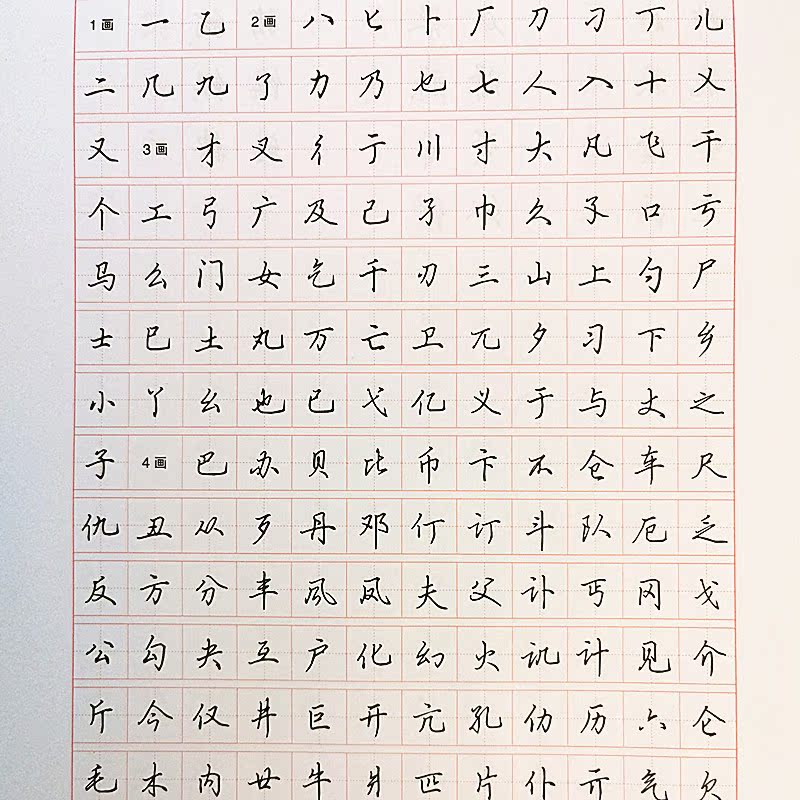 1画 一 乙 2画 八 匕 卜 厂 刀 刁 丁 儿
二 几 九 了 力 乃 乜 七 人 入 十 乂
又 3画 才 叉 彳 亍 川 寸 大 凡 飞 干
个 工 弓 广 及 己 孑 巾 久 孓 口 亏
马 么 门 女 乞 千 刃 三 山 上 勺 尸
士 巳 土 丸 万 亡 卫 兀 夕 习 下 乡
小 丫 幺 也 已 弋 亿 义 于 与 丈 之
子 4画 巴 办 贝 比 币 卞 不 仓 车 尺
仇 丑 从 歹 丹 邓 仃 订 斗 队 厄 乏
反 方 分 丰 风 凤 夫 父 讣 丐 冈 戈
公 勾 夬 互 户 化 幻 火 讥 计 见 介
斤 今 仅 井 巨 开 亢 孔 仂 历 六 仑
毛 木 内 廿 牛 爿 匹 片 仆 亓 气 欠